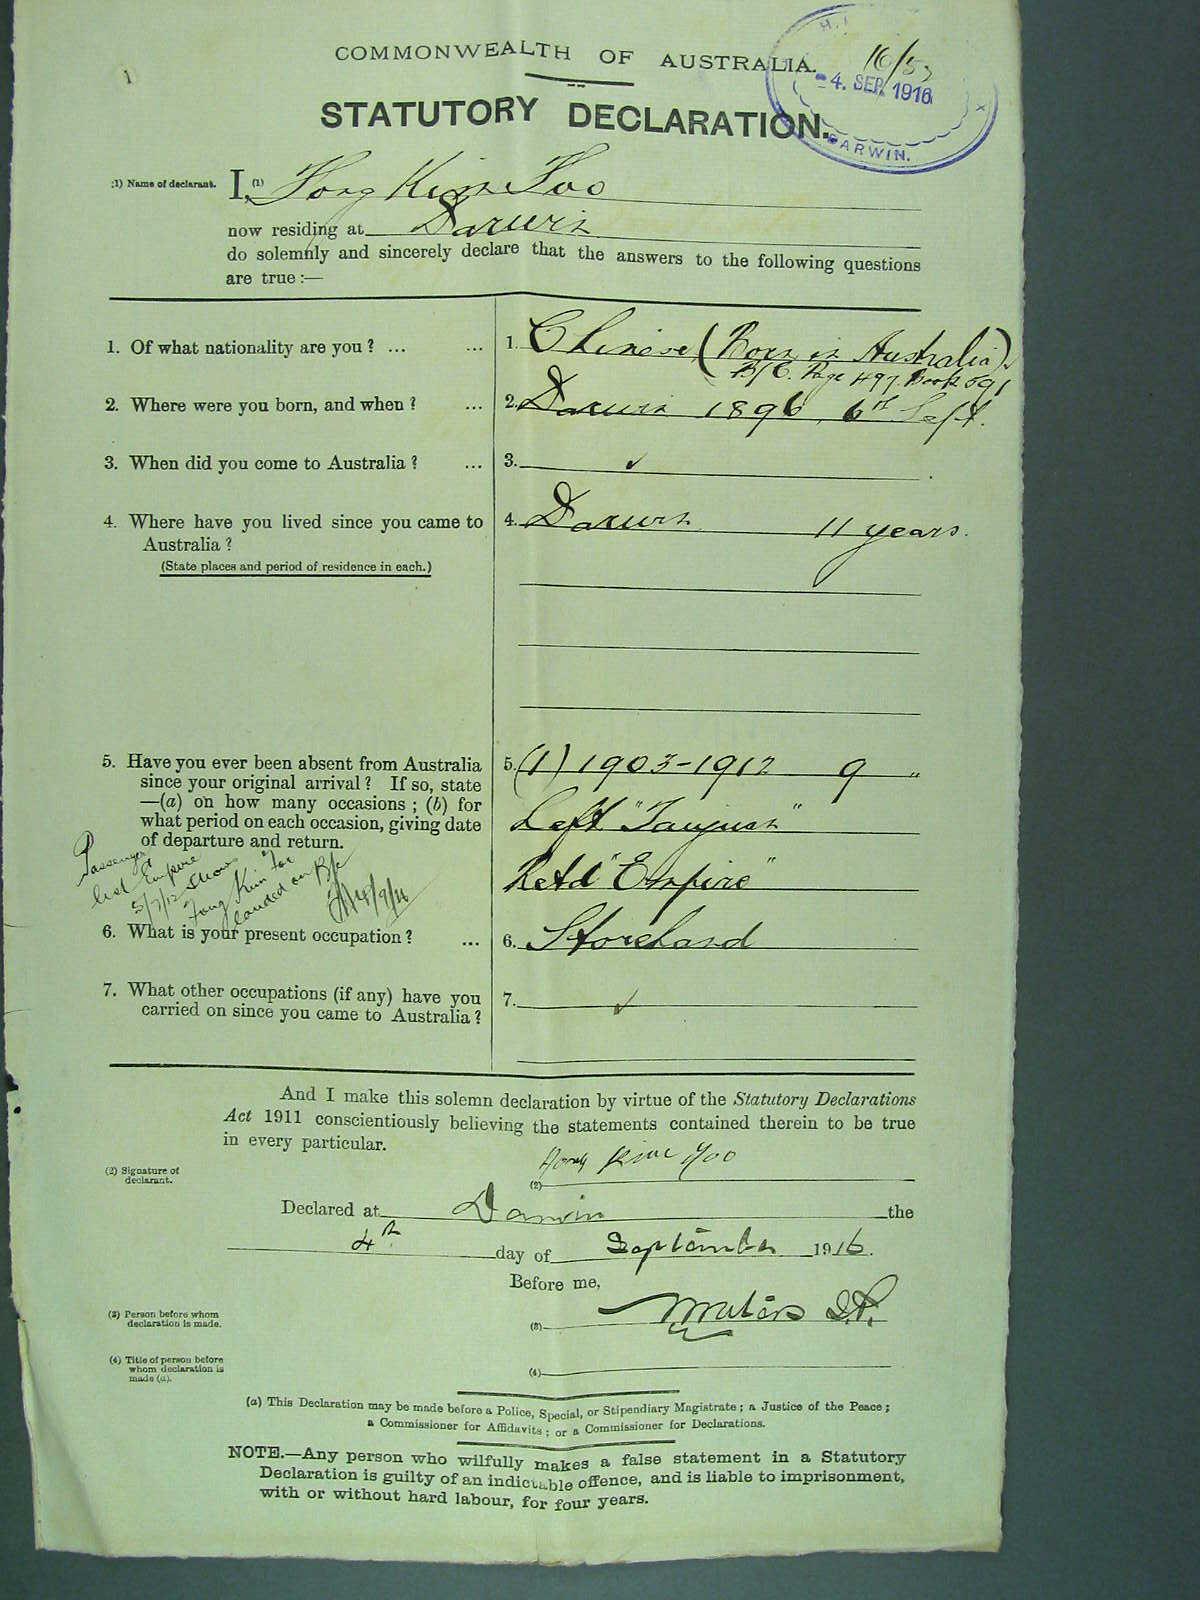 COMMONWEALTH OF AUSTRALIA.
16/53
4. SEP. 1916
DARWIN.
STATUTORY DECLARATION.
(1) Name of declarant. I, (1) Fong Kim Foo
now residing at Darwin
do solemnly and sincerely declare that the answers to the following questions
are true :—
1. Of what nationality are you ? ... ... 1. Chinese (Born in Australia)
B/C. Page 497 Book 591
2. Where were you born, and when ? ... 2. Darwin 1896, 6th Sept.
3. When did you come to Australia ? ... 3.
4. Where have you lived since you came to 4. Darwin 11 years.
Australia ?
(State places and period of residence in each.)
5. Have you ever been absent from Australia 5. (1) 1903-1912 9 "
since your original arrival ? If so, state
—(a) on how many occasions ; (b) for Left "Taiyuan"
what period on each occasion, giving date
of departure and return. Retd "Empire"
Passenger
list Empire
5/7/12 shows
Fong Kim Foo
landed on B/c
4/9/16
6. What is your present occupation ? ... 6. Storehand
7. What other occupations (if any) have you 7.
carried on since you came to Australia ?
And I make this solemn declaration by virtue of the Statutory Declarations
Act 1911 conscientiously believing the statements contained therein to be true
in every particular.
(2) Signature of
declarant.
(2) Fong Kim Foo
Declared at Darwin the
4th day of September 1916.
Before me,
(3) Person before whom
declaration is made.
(3) Waters J.P.
(4) Title of person before
whom declaration is
made (a).
(4)
(a) This Declaration may be made before a Police, Special, or Stipendiary Magistrate ; a Justice of the Peace ;
a Commissioner for Affidavits ; or a Commissioner for Declarations.
NOTE.—Any person who wilfully makes a false statement in a Statutory
Declaration is guilty of an indictable offence, and is liable to imprisonment,
with or without hard labour, for four years.